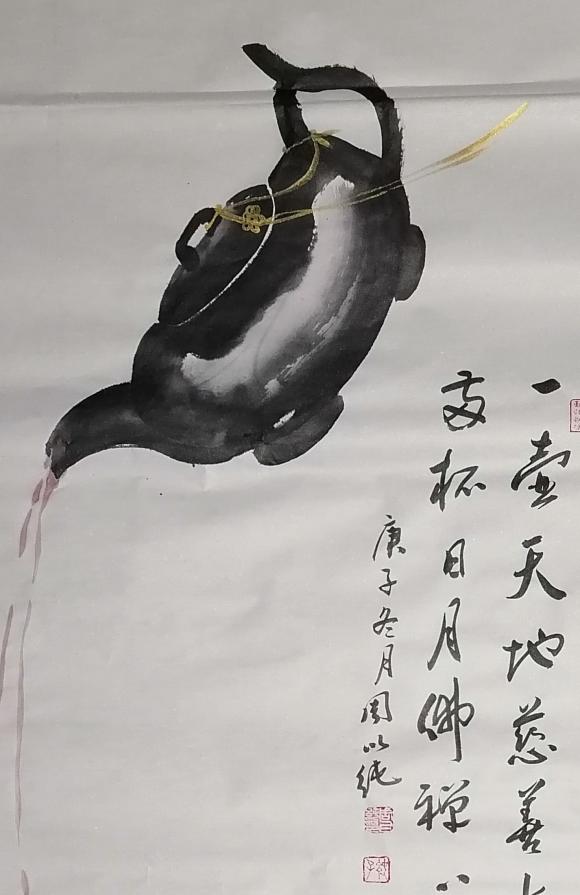 一壶天地慈善
两杯日月佛禅
庚子冬月周以纯